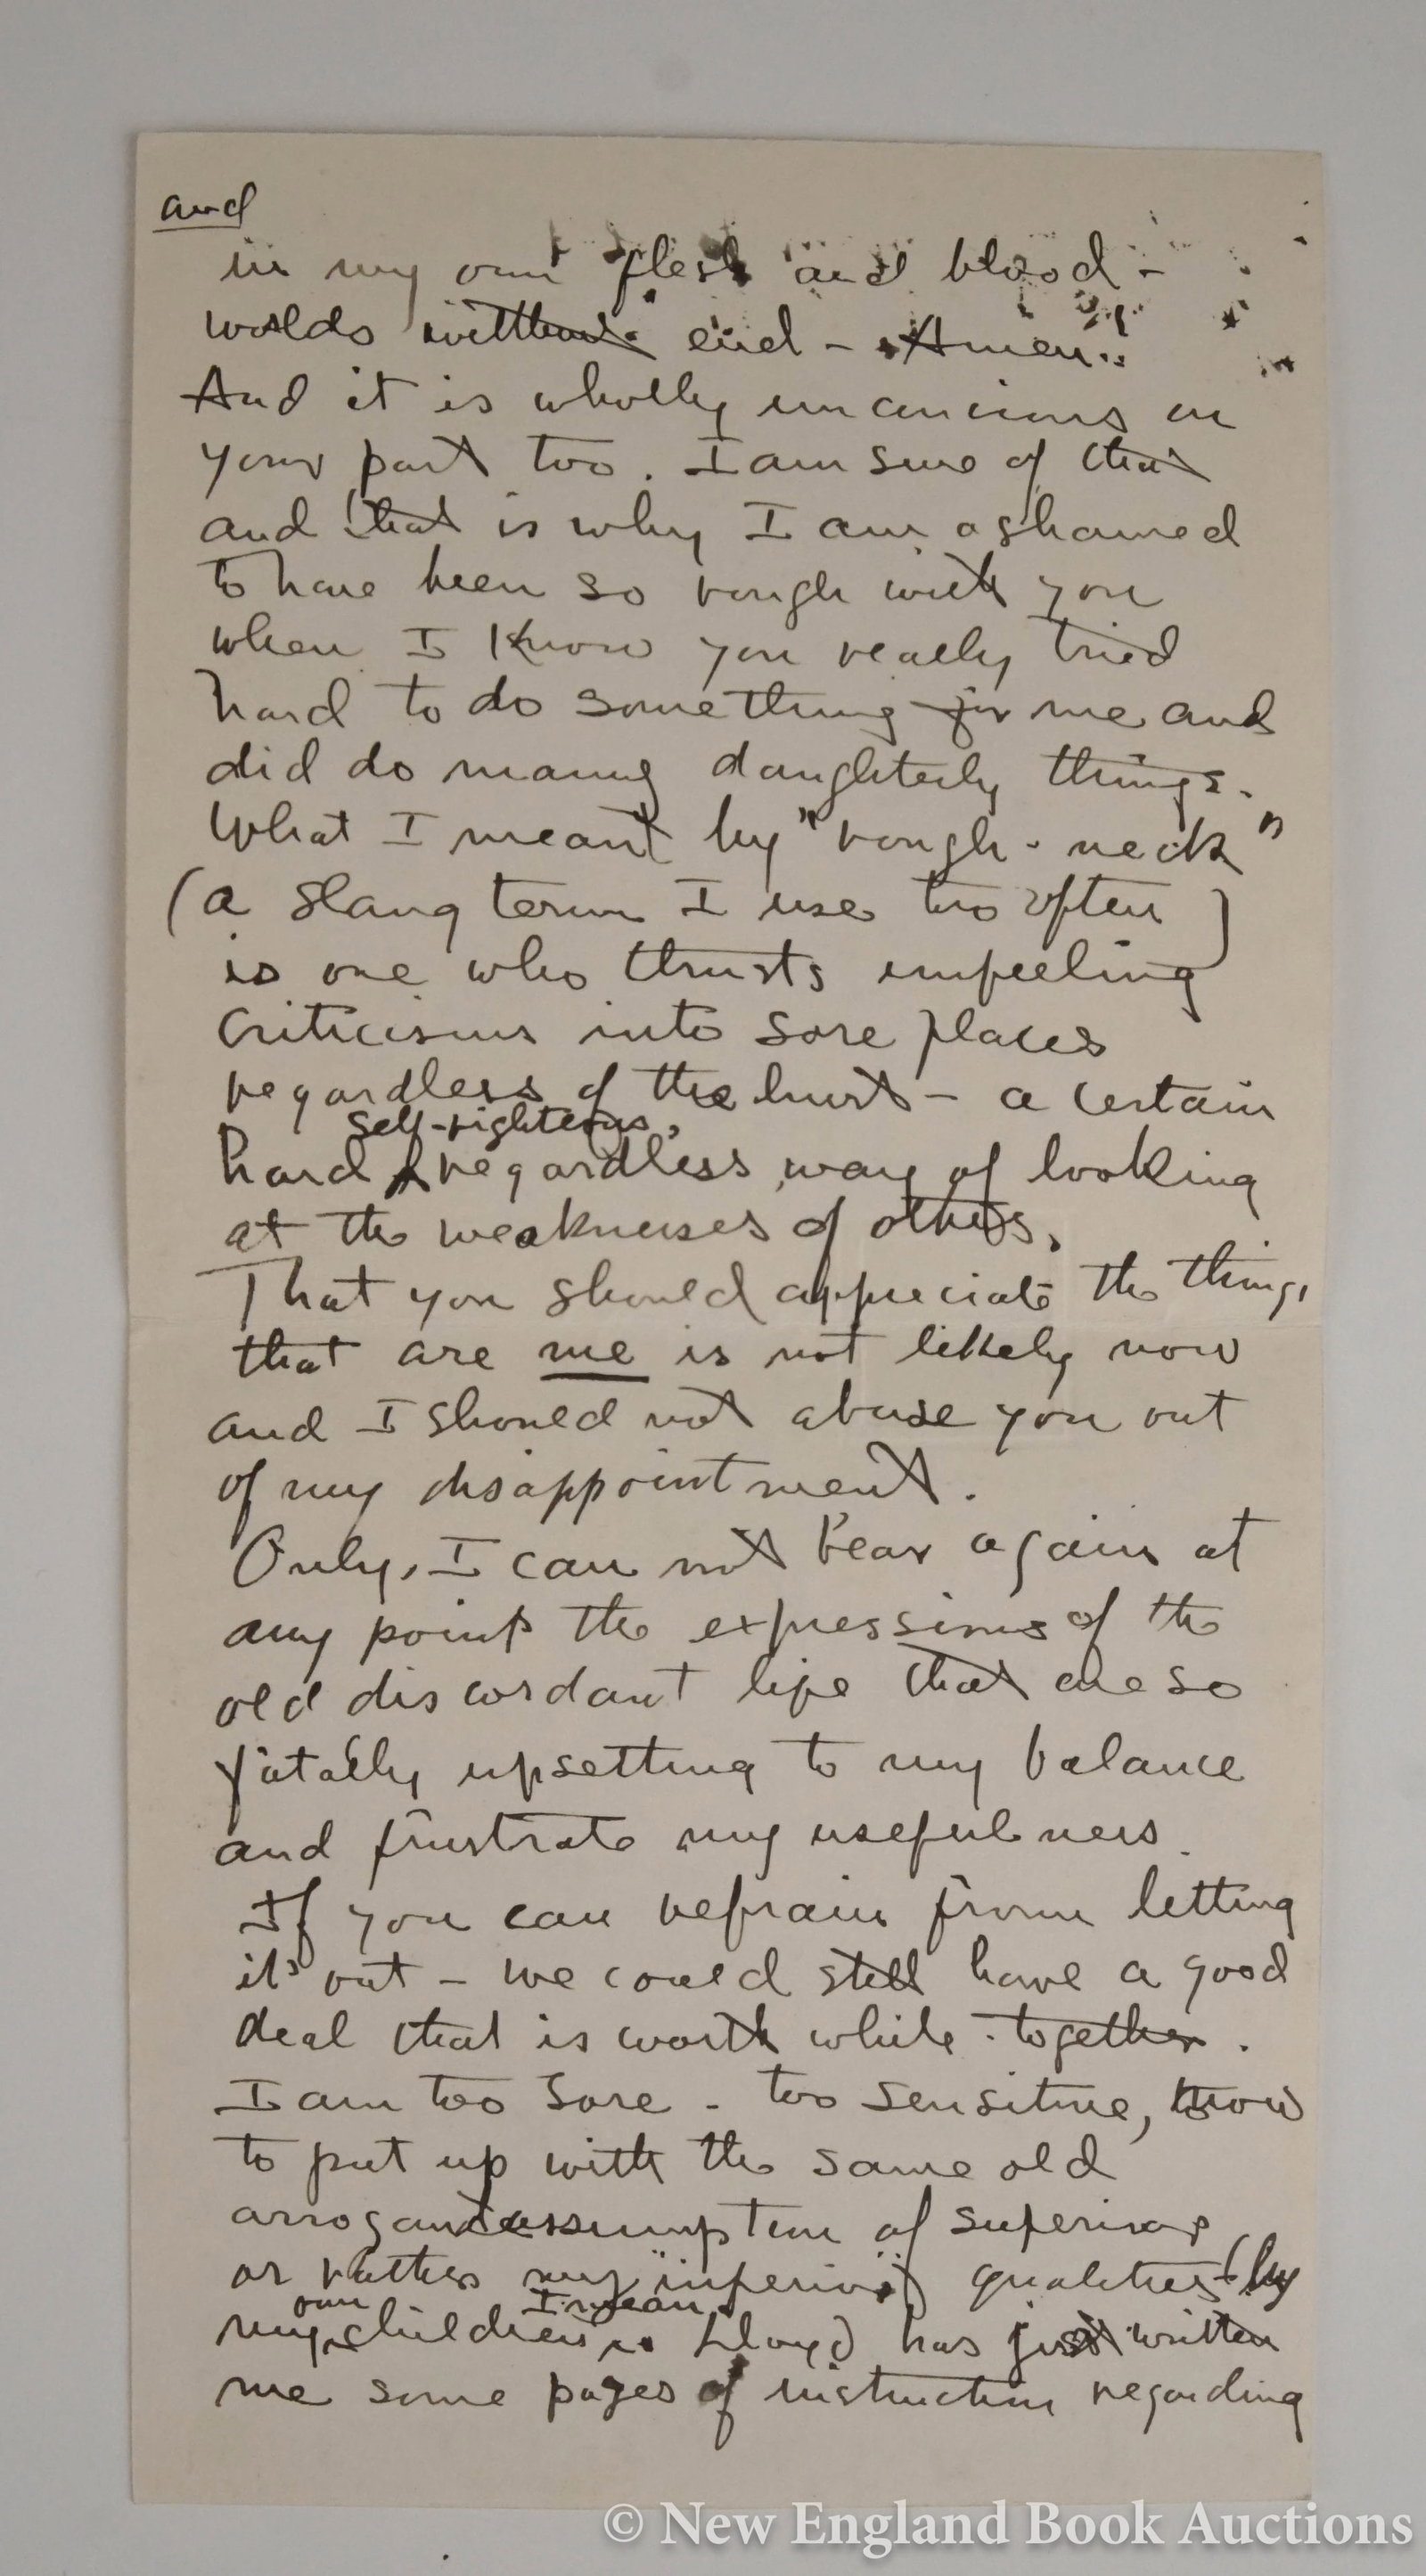 and
in my own flesh and blood -
worlds without end - Amen.
And it is wholly unconscious on
your part too. I am sure of that
and that is why I am ashamed
to have been so rough with you
when I know you really tried
hard to do something for me and
did do many daughterly things.
What I meant by "rough-neck"
(a slang term I use too often)
is one who thrusts unfeeling
criticisms into sore places
regardless of the hurt - a certain
self-righteous,
hard regardless way of looking
at the weaknesses of others.
That you should appreciate the things
that are me is not likely now
and I should not abuse you out
of my disappointment.
Only, I can not bear again at
any point the expressions of the
old discordant life that are so
fatally upsetting to my balance
and frustrate my usefulness.
If you can refrain from letting
it out - we could still have a good
deal that is worth while - together.
I am too sore - too sensitive, now
to put up with the same old
arrogant assumption of superior
or rather my "inferior" qualities (by
own I mean
my children. Lloyd has just written
me some pages of instruction regarding
© New England Book Auctions